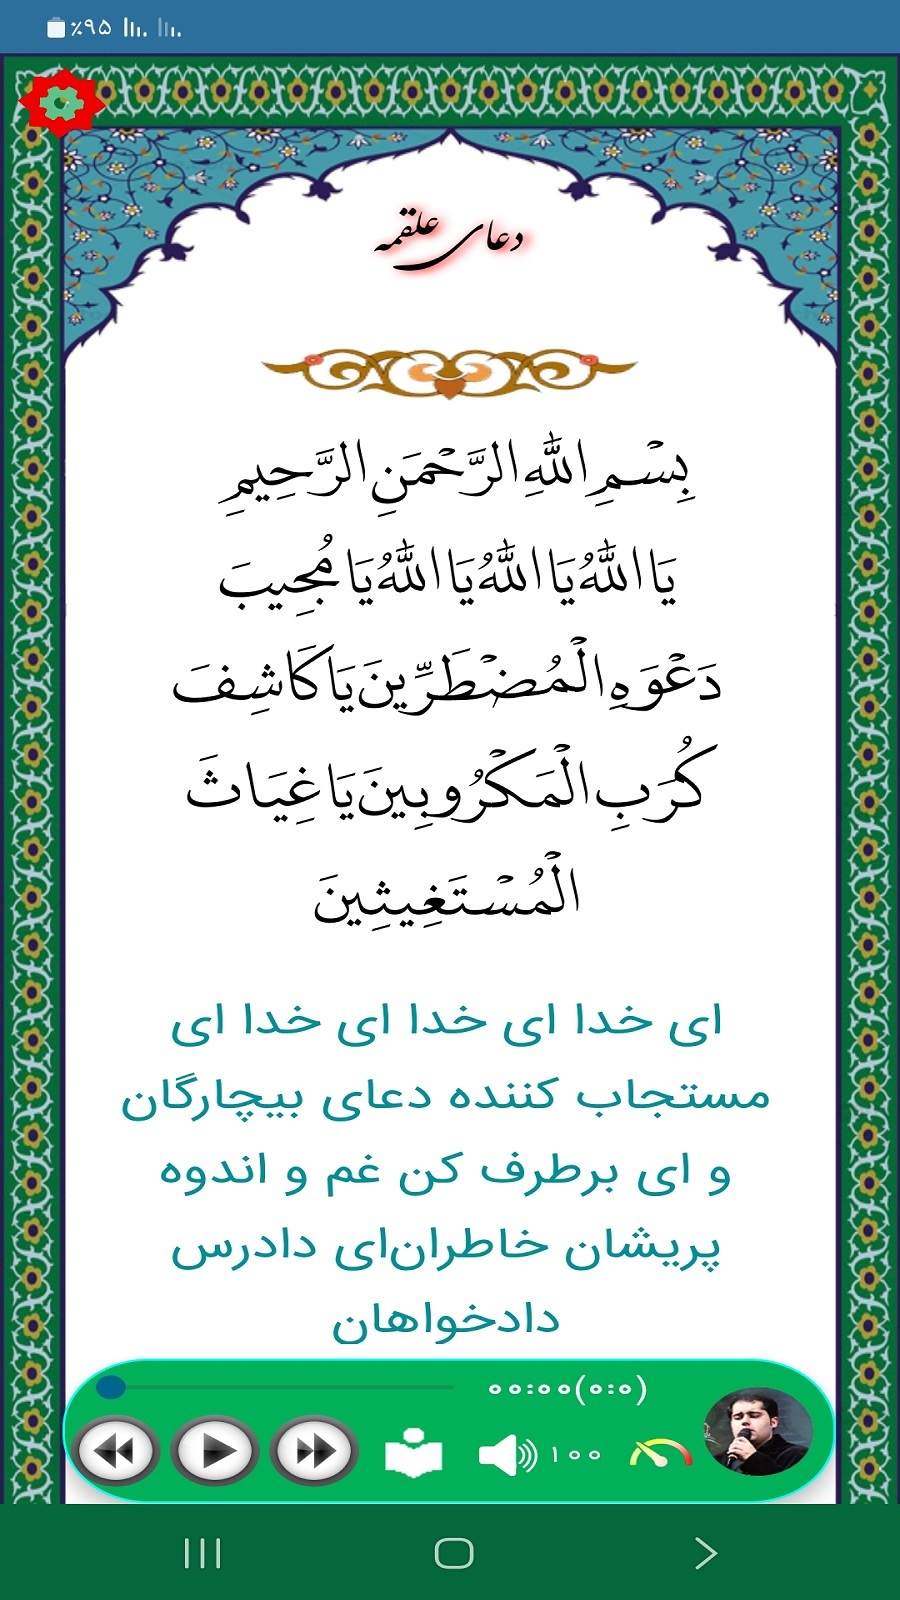 ٪۹۵
دعای علقمه
بِسْمِ اللَّهِ الرَّحْمَنِ الرَّحِيمِ
يَا اللَّهُ يَا اللَّهُ يَا اللَّهُ يَا مُجِيبَ
دَعْوَهِ الْمُضْطَرِّينَ يَا كَاشِفَ
كُرَبِ الْمَكْرُوبِينَ يَا غِيَاثَ
الْمُسْتَغِيثِينَ
ای خدا ای خدا ای خدا ای
مستجاب کننده دعای بیچارگان
و ای برطرف کن غم و اندوه
پریشان خاطران‌ای دادرس
دادخواهان
۰۰:۰۰(۰:۰)
۱۰۰